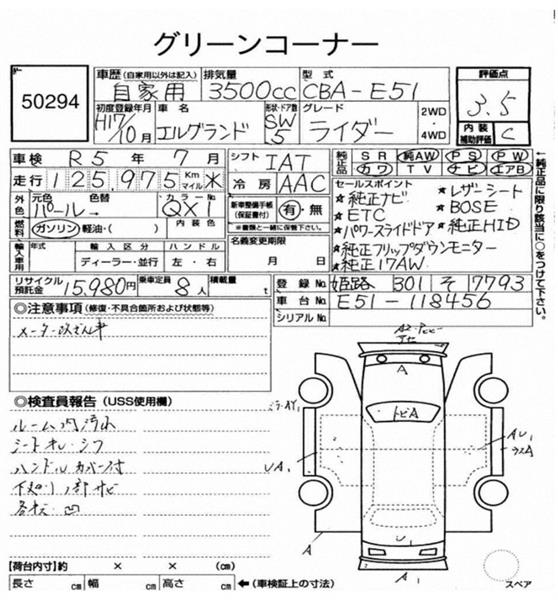 グリーンコーナー
50294
車歴 (自家用以外は記入) 自家用
排気量 3500cc
型式 CBA-E51
評価点 3.5
内装補助評価 C
初度登録年月 H17/10月
車名 エルグランド
形状・ドア数 SW 5
グレード ライダー
2WD
4WD
車検 R5年7月
シフト IAT
純正品 SR 純AW PS PW
カワ TV ナビ エアB
走行 125,975 Km マイル 米
冷房 AAC
外色 元色 パール 色替 → カラーNo. QX1
燃料 ガソリン・軽油・( ) 内装色 ( )
新車整備手帳(保証書付) 有・無
※書類と一緒に保管下さい。
セールスポイント
☆純正ナビ ☆レザーシート
☆ETC ☆BOSE
☆パワースライドドア ☆純正HID
☆純正フリップダウンモニター
☆純正17AW
輸入車用 年式 輸入区分 ハンドル
ディーラー・並行 左・右
名義変更期限
月 日
リサイクル預託金 15,980円
乗車定員 8人
積載量 t
登録No. 姫路 301 そ 7793
車台No. E51-118456
シリアルNo.
◎注意事項 (修復・不具合箇所および状態等)
メーター改ざん車
◎検査員報告 (USS使用欄)
ルーム内汚れ
シートオレ・シワ
ハンドルカバー付
下廻り1部サビ
各凹
アセ
A
トビA
ミラーAY1
UA1
AU1
A
U1
A1
スペア
【荷台内寸】約 × × (cm)
長さ cm 幅 cm 高さ cm ←(車検証上の寸法)